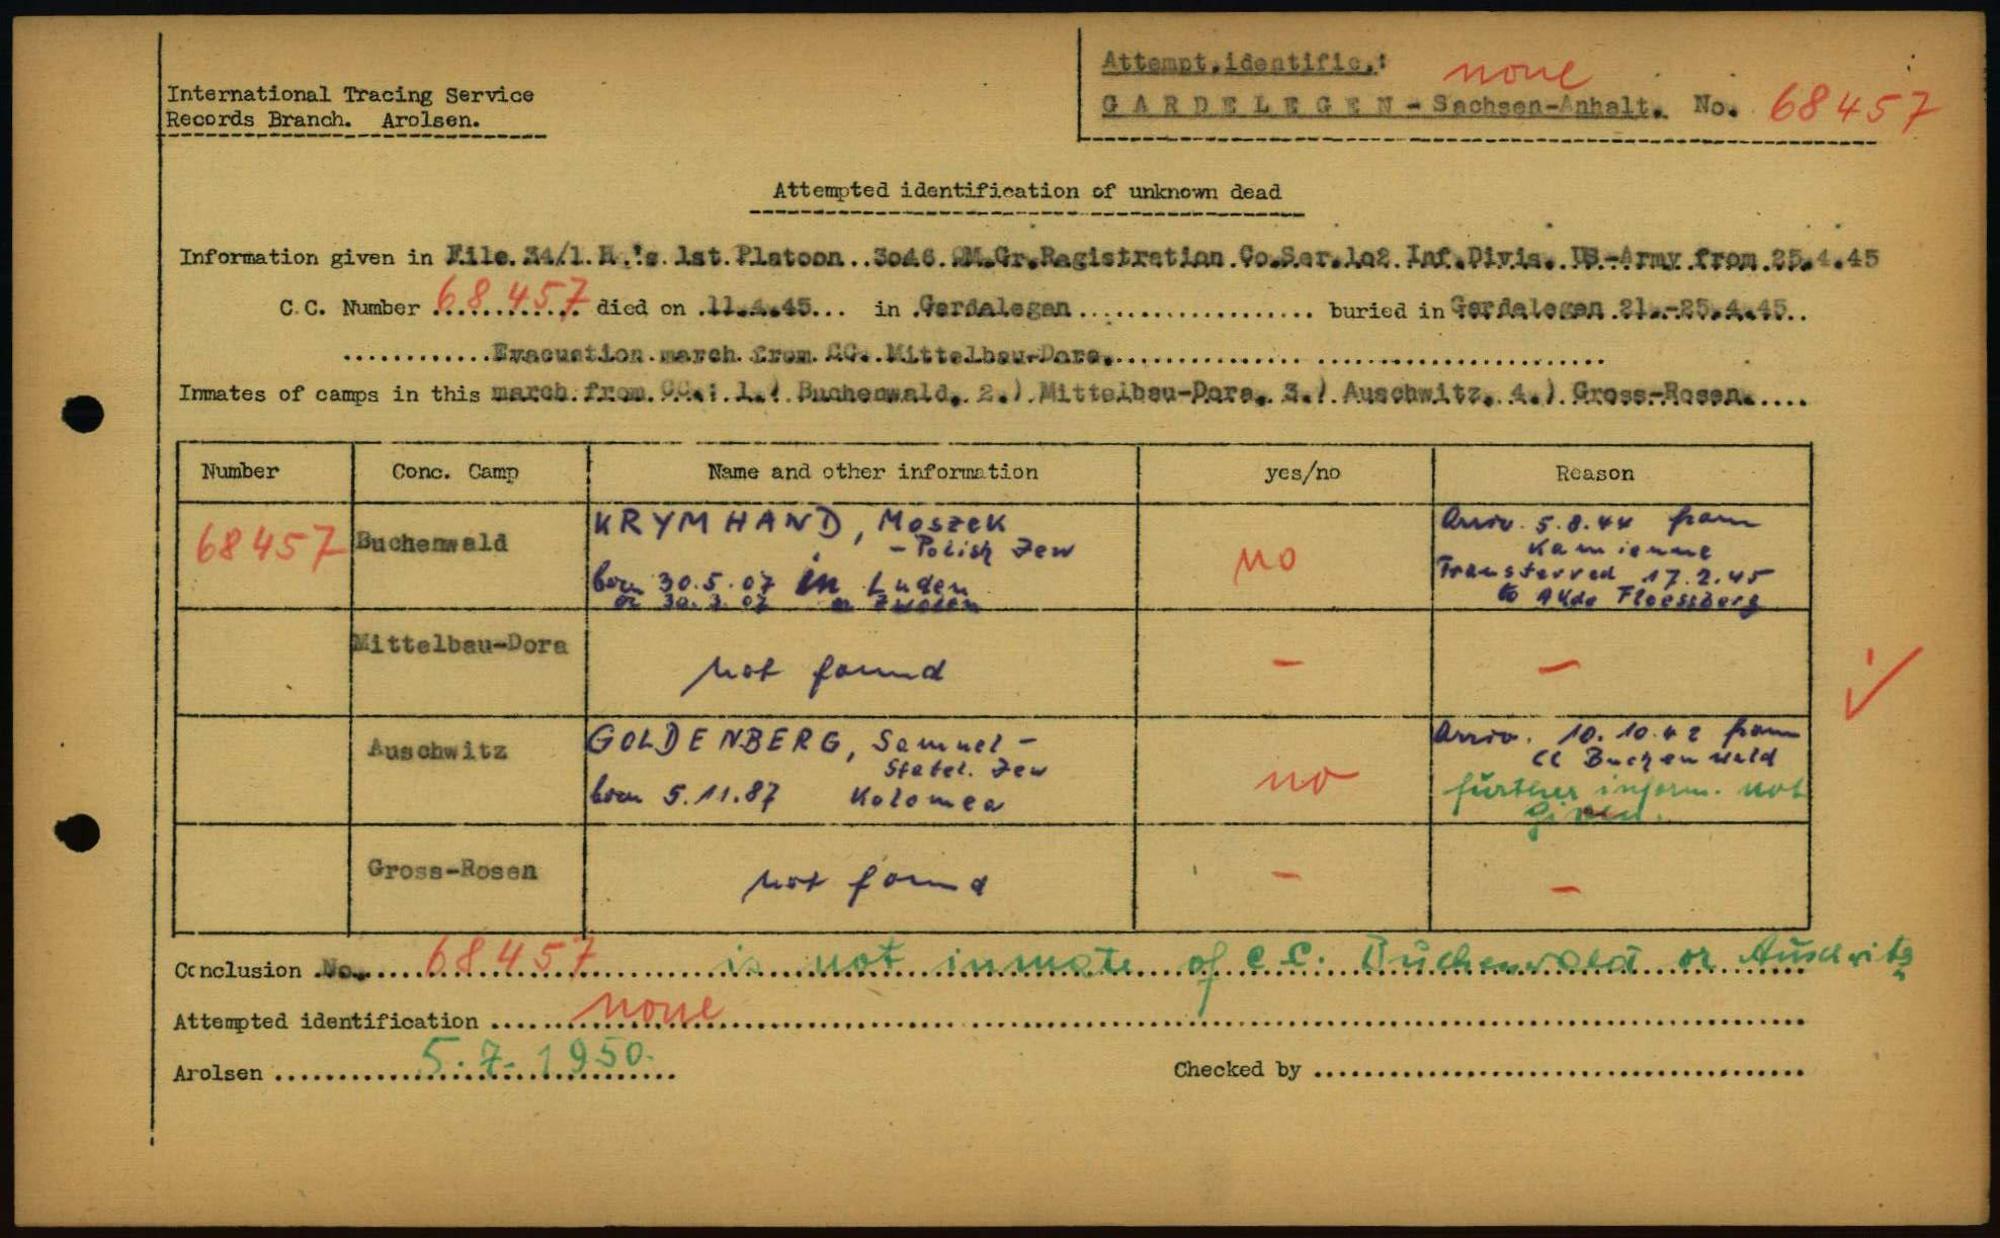 International Tracing Service
Records Branch. Arolsen.
Attempt.identific.: none
GARDELEGEN - Sachsen-Anhalt. No. 68457
Attempted identification of unknown dead
Information given in File. 34/1. H.'s. 1st. Platoon.. 3046. QM.Gr.Registration.Co.Ser.102.Inf.Divis. US-Army from 25.4.45
C.C. Number 68457 died on .11.4.45... in .Gardelegen .................. buried in Gardelegen 21.-25.4.45..
............Evacuation march from CC. Mittelbau-Dora.............................
Inmates of camps in this march from CC.: 1.) Buchenwald, 2.) Mittelbau-Dora, 3.) Auschwitz, 4.) Gross-Rosen.....
Number Conc. Camp Name and other information yes/no Reason
68457 Buchenwald KRYMHAND, Moszek
- Polish Jew
born 30.5.07 in Luden
or 30.3.07 or Zwolen
no
Arriv. 5.8.44 from
Kamienne
Transferred 17.2.45
to AKdo Floessberg
Mittelbau-Dora not found - -
Auschwitz GOLDENBERG, Samuel -
Statel. Jew
born 5.11.87 Kolomea
no
Arriv. 10.10.42 from
CC Buchenwald
further inform. not
given.
Gross-Rosen not found - -
Conclusion No. 68457 is not inmate of C.C. Buchenwald or Auschwitz
Attempted identification none
Arolsen 5.7.1950. Checked by ......................................